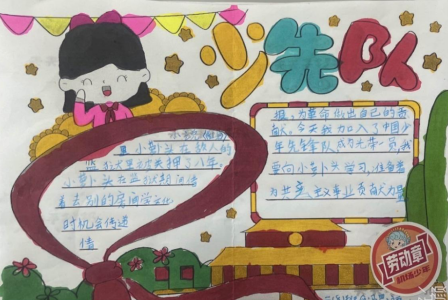 少先队
小萝卜头
是 在敌人的
监狱里被关押了八年。
小萝卜头在监狱期间借
着去别的房间学文化
的机会传递
情
报，为革命做出自己的贡
献。今天我加入了中国少
年先锋队成为光荣 员，我
要向小萝卜头学习，准备着
为共产主义事业贡献力量
劳动章